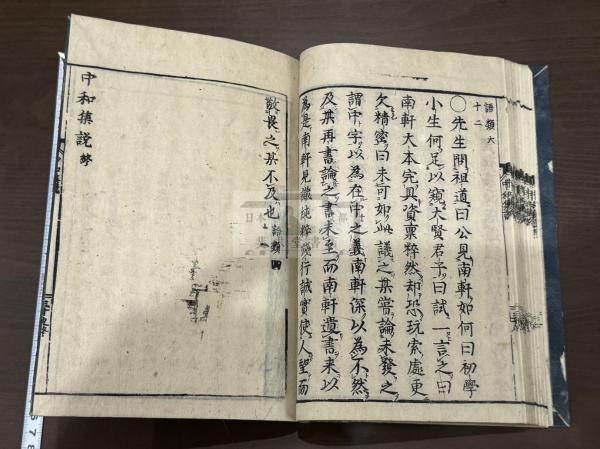 語類 六
十二
○先生問祖道曰公見南軒如何曰初學
小生何足以窺大賢君子曰試一言之曰
南軒大本完具資禀粹然却恐玩索處更
欠精密曰未可如此議之某嘗論未發之
謂中字以為在中之義南軒深以為不然
及某再書論之書未至而南軒遺書来以
為是南軒見識純粹踐行誠實使人望而
敬畏之某不及也 語類
中和集説 終